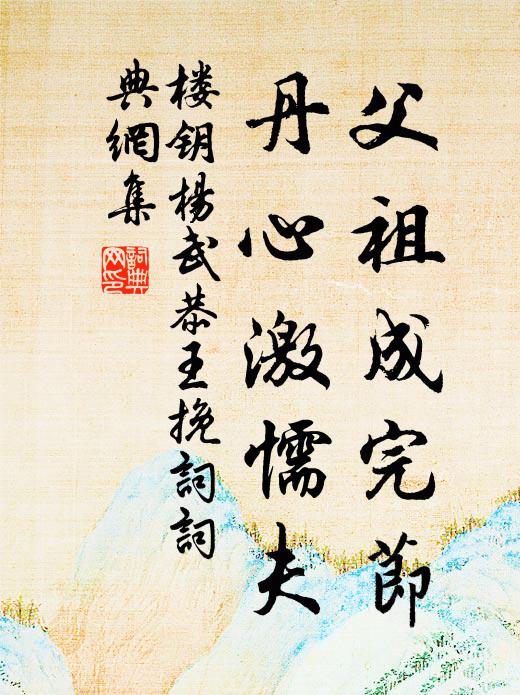 父祖成完節
丹心激懦夫
楼钥杨武恭王挽詞詞
典網集
詞典網印